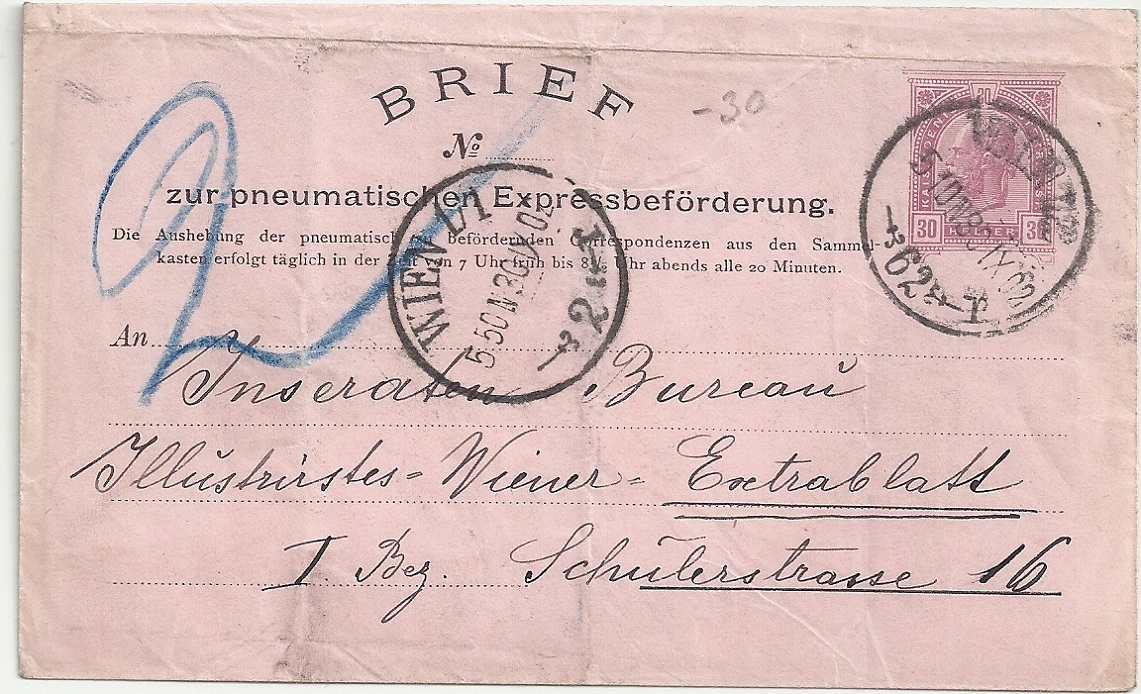 BRIEF
-30
№
zur pneumatischen Expressbeförderung.
Die Aushebung der pneumatisch befördernden Correspondenzen aus den Sammel-
kasten erfolgt täglich in der Zeit von 7 Uhr früh bis 8½ Uhr abends alle 20 Minuten.
30 HELLER 30
5 10 N 30 IX 02
62
WIEN 1/1
5 50 N 30 IX 02
2
2
An Inseraten Bureau
Illustrirtes=Wiener=Extrablatt
I Bez. Schulerstrasse 16